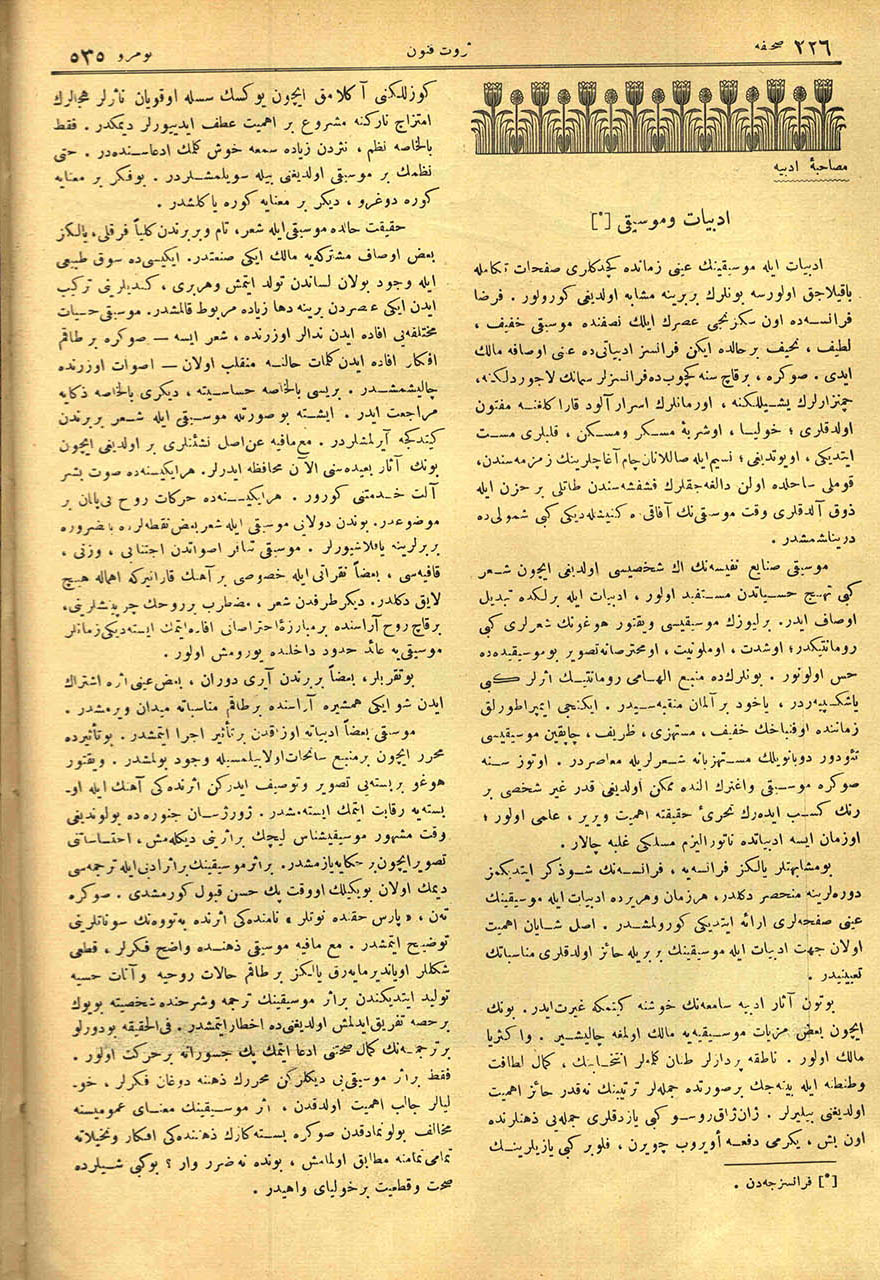 صحفه ٢٢٦
ثروت فنون
نومرو ٥٣٥
مصاحبۀ ادبیه
ادبیات وموسیقی [*]
ادبیات ایله موسیقینك عینی زمانده کچدکلری صفحات تکامله
باقیلاجق اولورسه بونلرك بربرینه مشابه اولدیغی کورولور . فرضا
فرانسه‌ده اون سکزنجی عصرك ایلك نصفنده موسیقی خفیف ،
لطیف ، نحیف برحالده ایکن فرانسز ادبیاتی‌ده عنی اوصافه مالك
ایدی . صوکره ، برقاچ سنه کچوب‌ده فرانسزلر سمانك لاجوردلکنه،
چمنزارلرك یشیللکنه ، اورمانلرك اسرار آلود قارا کلغنه مفتون
اولدقلری ؛ خولیا ، اوشربۀ مسکر ومسکن ، قلبلری مست
ایتدیکی ، اویوتدیغی ؛ نسیم ایله صاللانان چام آغاچلرینك زمزمه‌سندن،
قوملی ساحلده اولن دالغه‌جقلرك فشفشه‌سندن طاتلی بر حزن ایله
ذوق آلدقلری وقت موسیقی‌نك آفاقی ده کنیشله‌دیکی کبی شمولی‌ده
درینلشمشدر .
موسیقی صنایع نفیسه‌نك اك شخصیسی اولدیغی ایچون شعر
کبی تهییج حسیاتدن مستفید اولور ، ادبیات ایله برلکده تبدیل
اوصاف ایدر. برلیوزك موسیقیسی ویقتور هوغونك شعرلری کبی
رومانتیکدر؛ اوشدت ، اوملونیت ، اومحترصانه تصویر بوموسیقیده‌ده
حس اولونور . بونلرك‌ده منبع الهامی رومانتیك اثرلر کبی
یاشکسپیردر ، یاخود بر آلمان منقبه‌سیدر. ایکنجی ایمپراطورلق
زماننده اوفنباخك خفیف ، مستهزی ، ظریف ، چاپقین موسیقیسی
تئودور دوبانویلك مستهزیانه شعرلریله معاصردر . اوتوز سنه
صوکره موسیقی واغنرك النده ممکن اولدیغی قدر غیر شخصی بر
رنك کسب ایده‌رك تحرئ حقیقته اهمیت ویریر ، علمی اولور ؛
اوزمان ایسه ادبیاتده ناتورالیزم مسلکی غلبه چالار .
بومشابهتلر یالکز فرانسه‌یه ، فرانسه‌نك شو ذکر ایتدیکمز
دوره‌لرینه منحصر دکلدر، هرزمان وهریرده ادبیات ایله موسیقینك
عینی صفحه‌لری ارائه ایتدیکی کورولمشدر . اصل شایان اهمیت
اولان جهت ادبیات ایله موسیقینك بربریله حائز اولدقلری مناسباتك
تعیینیدر .
بوتون آثار ادبیه سامعه‌نك خوشنه کیتمکه غیرت ایدر. بونك
ایچون بعض مزیات موسیقیه‌یه مالك اولمغه چالیشیر . واکثریا
مالك اولور . ناطقه پردازلر طنان کلمه‌لر انتخابنك ، کمال لطافت
وطنطنه ایله بیته‌جك برصورتده جمله‌لر ترتیبنك نه‌قدر حائز اهمیت
اولدیغی بیلیرلر . ژان‌ژاق روسو کبی یازدقلری جمله‌یی ذهنلرنده
اون بش ، یکرمی دفعه أویروب چویرن ، فلوبر کبی یازیلرینك
[*] فرانسزجه‌دن .
کوزللکنی آکلامق ایچون یوکسك سسله اوقویان ناثرلر هجالرك
امتزاج نارکنه مشروع بر اهمیت عطف ایدییورلر دیمکدر . فقط
بالخاصه نظم ، نثردن زیاده سمعه خوش کلمك ادعاسنده‌در . حتی
نظمك بر موسیقی اولدیغی بیله سویلمشلردر . بوفکر بر معنایه
کوره دوغرو ، دیکر بر معنایه کوره یاکلشدر .
حقیقت حالده موسیقی ایله شعر، تام وبربرندن کلیاً فرقلی، یالکز
بعض اوصاف مشترکه‌یه مالك ایکی صنعتدر. ایکیسی‌ده سوق طبیعی
ایله وجود بولان لساندن تولد ایتمش وهربری ، کندیلرینی ترکیب
ایدن ایکی عصردن برینه دها زیاده مربوط قالمشدر. موسیقی حسیات
مختلفه‌یی افاده ایدن ندالر اوزرنده ، شعر ایسه — صوکره بر طاقم
افکار افاده ایدن کلمات حالنه منقلب اولان — اصوات اوزرنده
چالیشمشدر . بریسی بالخاصه حساسیته ، دیکری بالخاصه ذکایه
مراجعت ایدر . ایشته بو صورتله موسیقی ایله شعر بربرندن
کیتدکجه آیرلمشلردر . مع‌مافیه عن‌اصل نشئتلری بر اولدیغی ایچون
بونك آثار بعیده‌سنی الآن محافظه ایدرلر. هرایکیسنده صوت بشر
آلت خدمتنی کورور . هرایکیسنده حرکات روح بی‌پایان بر
موضوعدر. بوندن دولایی موسیقی ایله شعر بعض نقطه‌لرده بالضروره
بربرلرینه یاقلاشیورلر . موسیقی تنافر اصواتدن اجتنابی ، وزنی ،
قافیه‌سی ، بعضاً نقراتی ایله خصوصی بر آهنك قازانیرکه اهماله هیچ
لایق دکلدر. دیکر طرفدن شعر ، مضطرب برروحك چرپینشلرینی،
برقاچ روح آراسنده بر مبارزۀ احتراصانی افاده ایتمك ایسته‌دیکی زمانلر
موسیقی‌یه عائد حدود داخلنده یورومش اولور .
بوتقربلر، بعضاً بربرندن آیری دوران ، بعض عینی اثره اشتراك
ایدن شو ایکی همشیره آراسنده بر طاقم مناسباته میدان ویرمشدر .
موسیقی بعضاً ادبیاته اوزاقدن بر تأثیر اجرا ایتمشدر . بوتأثیرده
محرر ایچون بر منبع سانحات اولابیلمسیله وجود بولمشدر . ویقتور
هوغو بریسته‌یی تصویر وتوصیف ایدرکن اثرنده‌کی آهنك ایله او
بسته‌یه رقابت ایتمك ایسته‌مشدر. ژورژسان جنوره‌ده بولوندیغی
وقت مشهور موسیقیشناس لیچك براثرینی دیکله‌مش، احتساساتنی
تصویر ایچون بر حکایه یازمشدر. براثر موسیقینك براثر ادبی ایله ترجمه‌سی
دیمك اولان بویکیلك اووقت پك حسن قبول کورمشدی . صوکره
تەن ، «پارس حقنده نوتلر» نامنده‌کی اثرنده بەتووه‌نك سوناتلرینی
توضیح ایتمشدر . مع مافیه موسیقی ذهنده واضح فکرلر ، قطعی
شکللر اویاندیرمایه‌رق یالکز بر طاقم حالات روحیه وآنات حسیه
تولید ایتدیکندن براثر موسیقینك ترجمه وشرحنده شخصیته بویوك
برحصه تفریق ایدلمش اولدیغی‌ده اخطار ایتمشدر . فی‌الحقیقه بودورلو
برترجمه‌نك کمال صحتنی ادعا ایتمك پك جسورانه برحرکت اولور .
فقط براثر موسیقی‌یی دیکلرکن محررك ذهننه دوغان فکرلر ، خو-
لیالر جالب اهمیت اولدقدن ، اثر موسیقینك معنای عمومیسنه
مخالف بولونمادقدن صوکره بسته‌کارك ذهننده‌کی افکار وتخیلاته
تمامی تمامنه مطابق اولمامش ، بونده نه ضرر وار ؟ بوکبی شیلرده
صحت وقطعیت بر خولیای واهیدر .